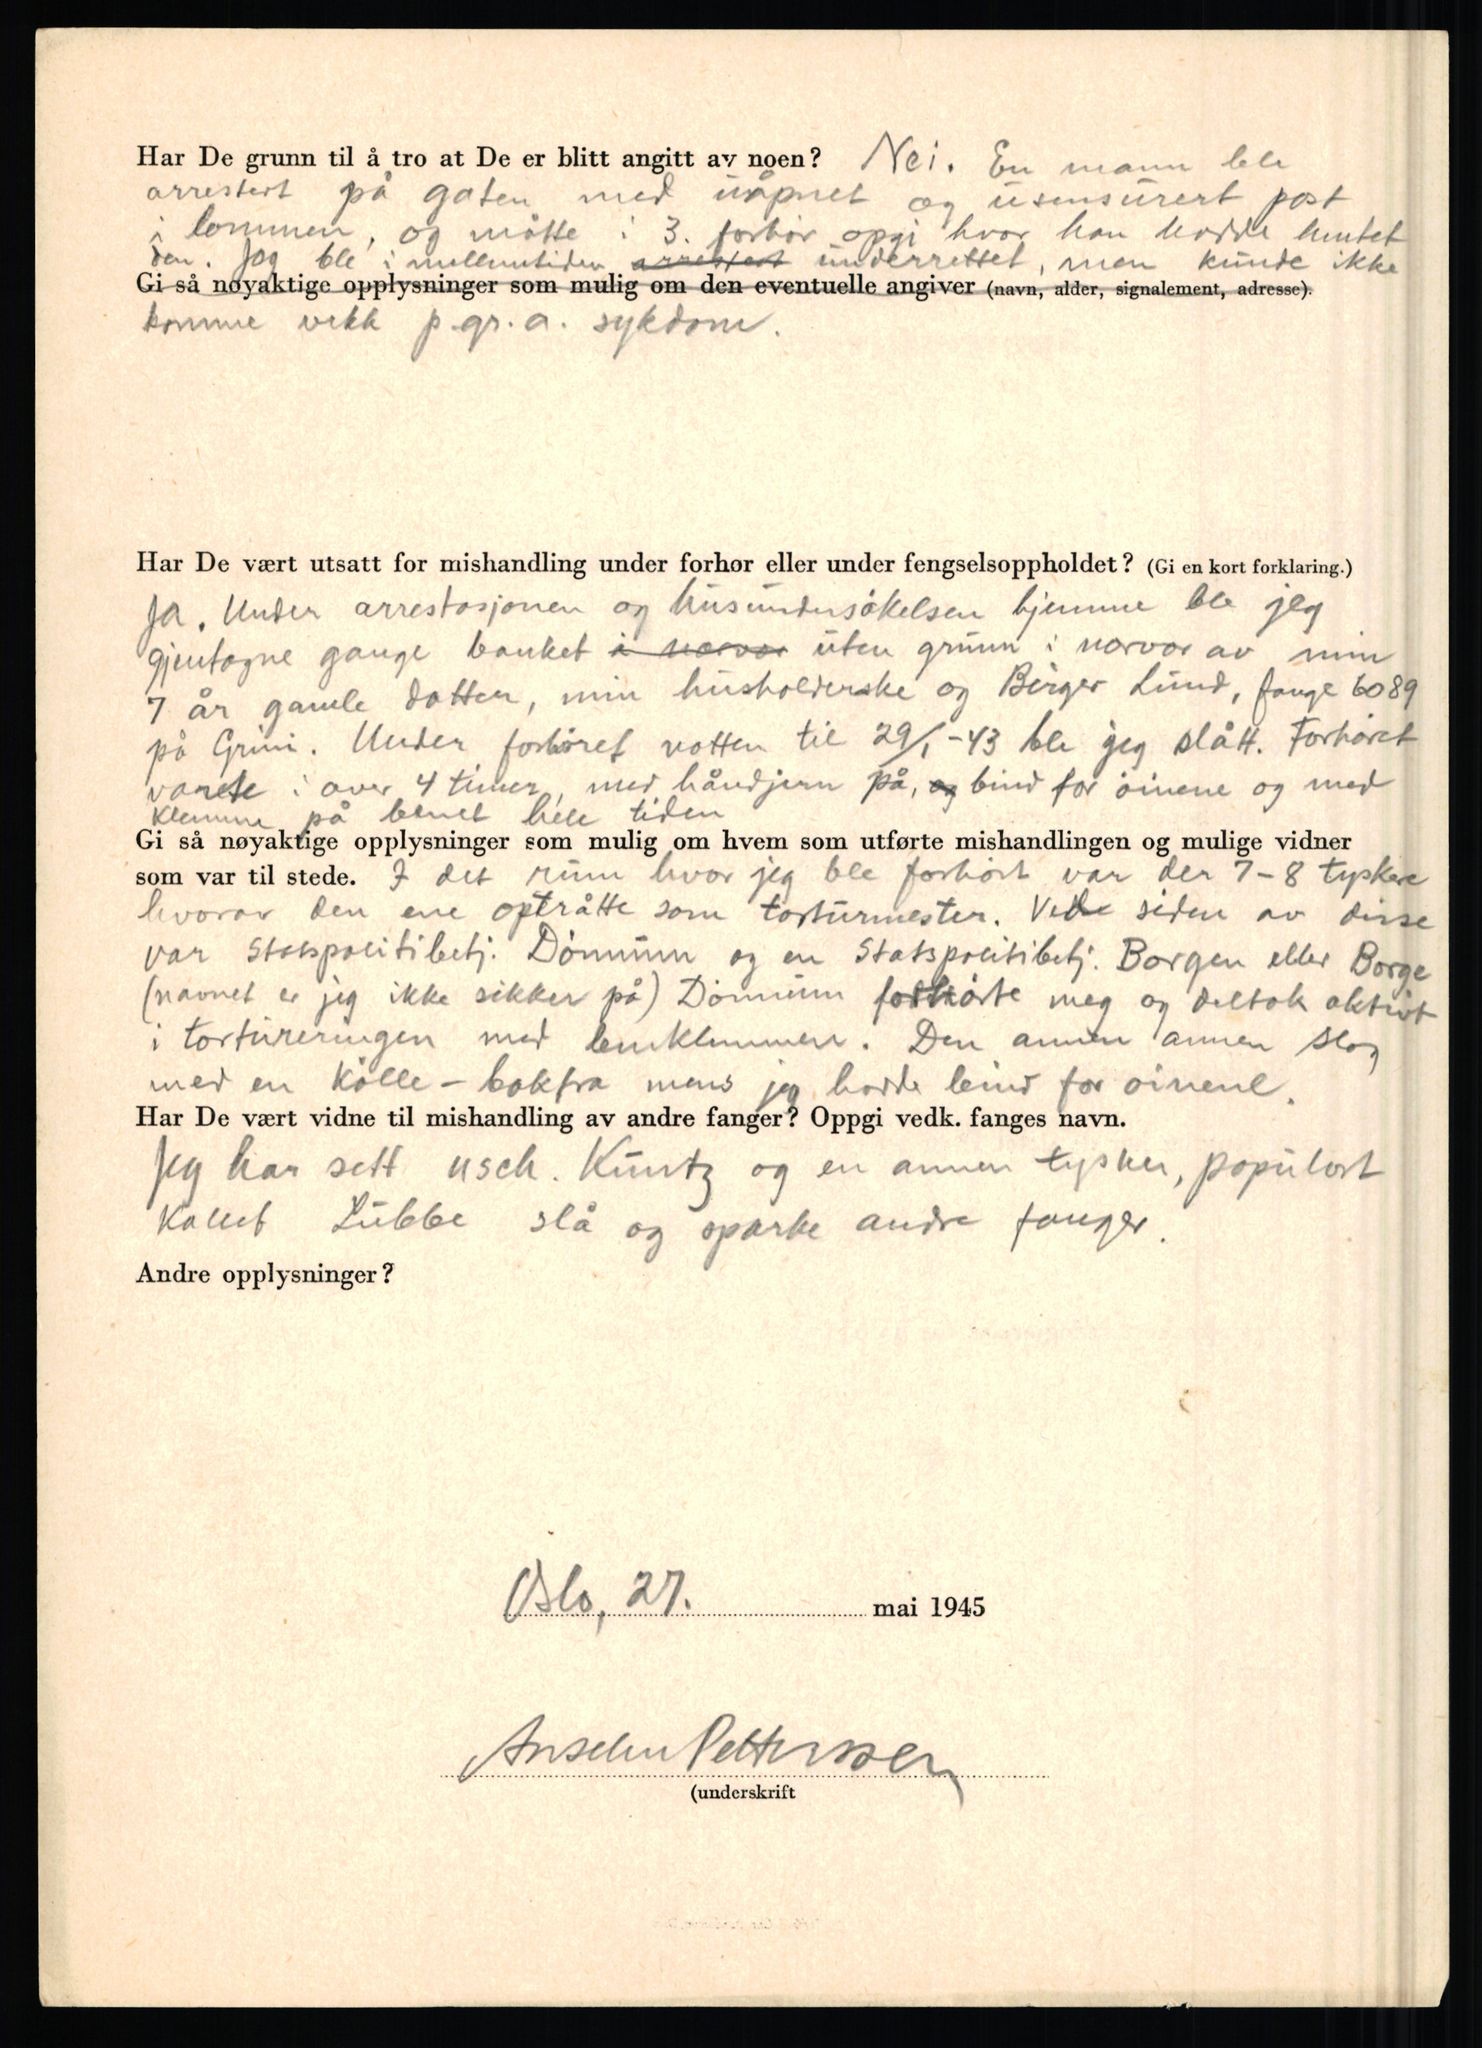 Har De grunn til å tro at De er blitt angitt av noen? Nei. En mann ble
arrestert på gaten med uåpnet og usensurert post
i lommen, og måtte i 3. forhör opgi hvor han hadde hentet
den. Jeg ble i mellemtiden arrestert underrettet, men kunde ikke
Gi så nøyaktige opplysninger som mulig om den eventuelle angiver (navn, alder, signalement, adresse).
komme vekk p.gr.a. sykdom.
Har De vært utsatt for mishandling under forhør eller under fengselsoppholdet? (Gi en kort forklaring.)
Ja. Under arrestasjonen og husundersökelsen hjemme ble jeg
gjentagne gange banket i nærvær uten grunn i nærvær av min
7 år gamle datter, min husholderske og Birger Lund, fange 6089
på Grini. Under forhöret natten til 29/1-43 ble jeg slått. Forhöret
varete i over 4 timer, med håndjern på, og bind for öinene og med
klemme på benet hele tiden
Gi så nøyaktige opplysninger som mulig om hvem som utførte mishandlingen og mulige vidner
som var til stede. I det rum hvor jeg ble forhört var der 7-8 tyskere
hvorav den ene optråtte som torturmester. Ved siden av disse
var Statspolitibetj. Dönnum og en Statspolitibetj. Borgen eller Borge
(navnet er jeg ikke sikker på) Dönnum forhörte meg og deltok aktivt
i tortureringen med benklemmen. Den annen annen slog
med en kölle - bakfra mens jeg hadde bind for öinene.
Har De vært vidne til mishandling av andre fanger? Oppgi vedk. fanges navn.
Jeg har sett usch. Kuntz og en annen tysker, populært
kallet Lübbe slå og sparke andre fanger.
Andre opplysninger?
Oslo, 27. mai 1945
Anselm Pettersen
(underskrift